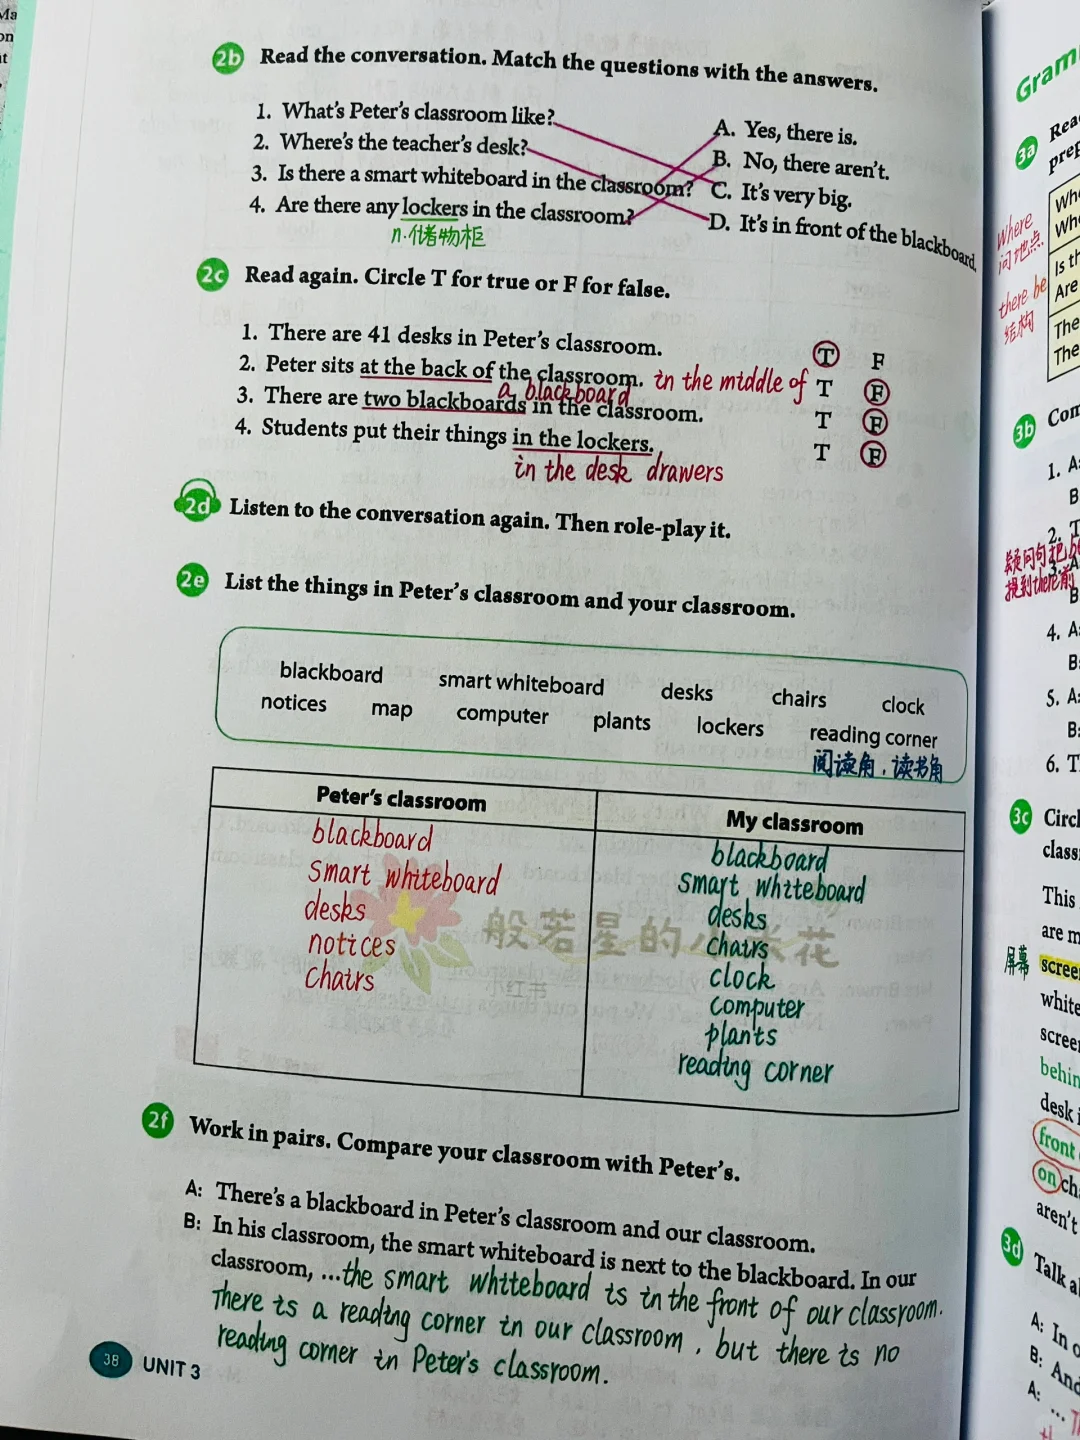 Ma
on
2b Read the conversation. Match the questions with the answers.
1. What's Peter's classroom like?
2. Where's the teacher's desk?
3. Is there a smart whiteboard in the classroom?
4. Are there any lockers in the classroom?
n.储物柜
A. Yes, there is.
B. No, there aren't.
C. It's very big.
D. It's in front of the blackboard.
2c Read again. Circle T for true or F for false.
1. There are 41 desks in Peter's classroom. T F
2. Peter sits at the back of the classroom. in the middle of T F
a blackboard
3. There are two blackboards in the classroom. T F
4. Students put their things in the lockers. T F
in the desk drawers
2d Listen to the conversation again. Then role-play it.
2e List the things in Peter's classroom and your classroom.
blackboard smart whiteboard desks chairs clock
notices map computer plants lockers reading corner
阅读角，读书角
Peter's classroom
blackboard
smart whiteboard
desks
notices
chairs
My classroom
blackboard
smart whiteboard
desks
chairs
clock
computer
plants
reading corner
般若星的小米花
2f Work in pairs. Compare your classroom with Peter's.
A: There's a blackboard in Peter's classroom and our classroom.
B: In his classroom, the smart whiteboard is next to the blackboard. In our
classroom, ...the smart whiteboard is in the front of our classroom.
There is a reading corner in our classroom, but there is no
reading corner in Peter's classroom.
38 UNIT 3
Gram
3a Rea
prep
Whe
Whe
Is th
Are
The
The
where
问地点
there be
结构
3b Con
1. A:
B
2. T
疑问句把be
提到there前
3. A
B
4. A:
B:
5. A:
B:
6. T
3c Circl
class
This
are m
屏幕
scree
white
scree
behin
desk i
front
on cha
aren't
3d Talk a
A: In o
B: And
A: ...